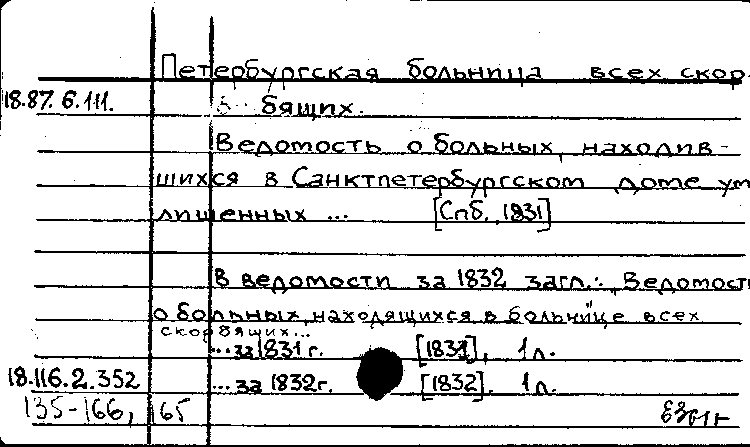 Петербургская больница всех скор-
18.87.6.111. бящих.
Ведомость о больных, находив-
шихся в Санктпетербургском доме ум
лишенных ... [Спб., 1831]
В ведомости за 1832 загл.: Ведомост
о больных, находящихся в больнице всех
скорбящих...
...за 1831 г. [1831], 1 л.
18.116.2.352 ...за 1832г. [1832]. 1 л.
135-166, 165